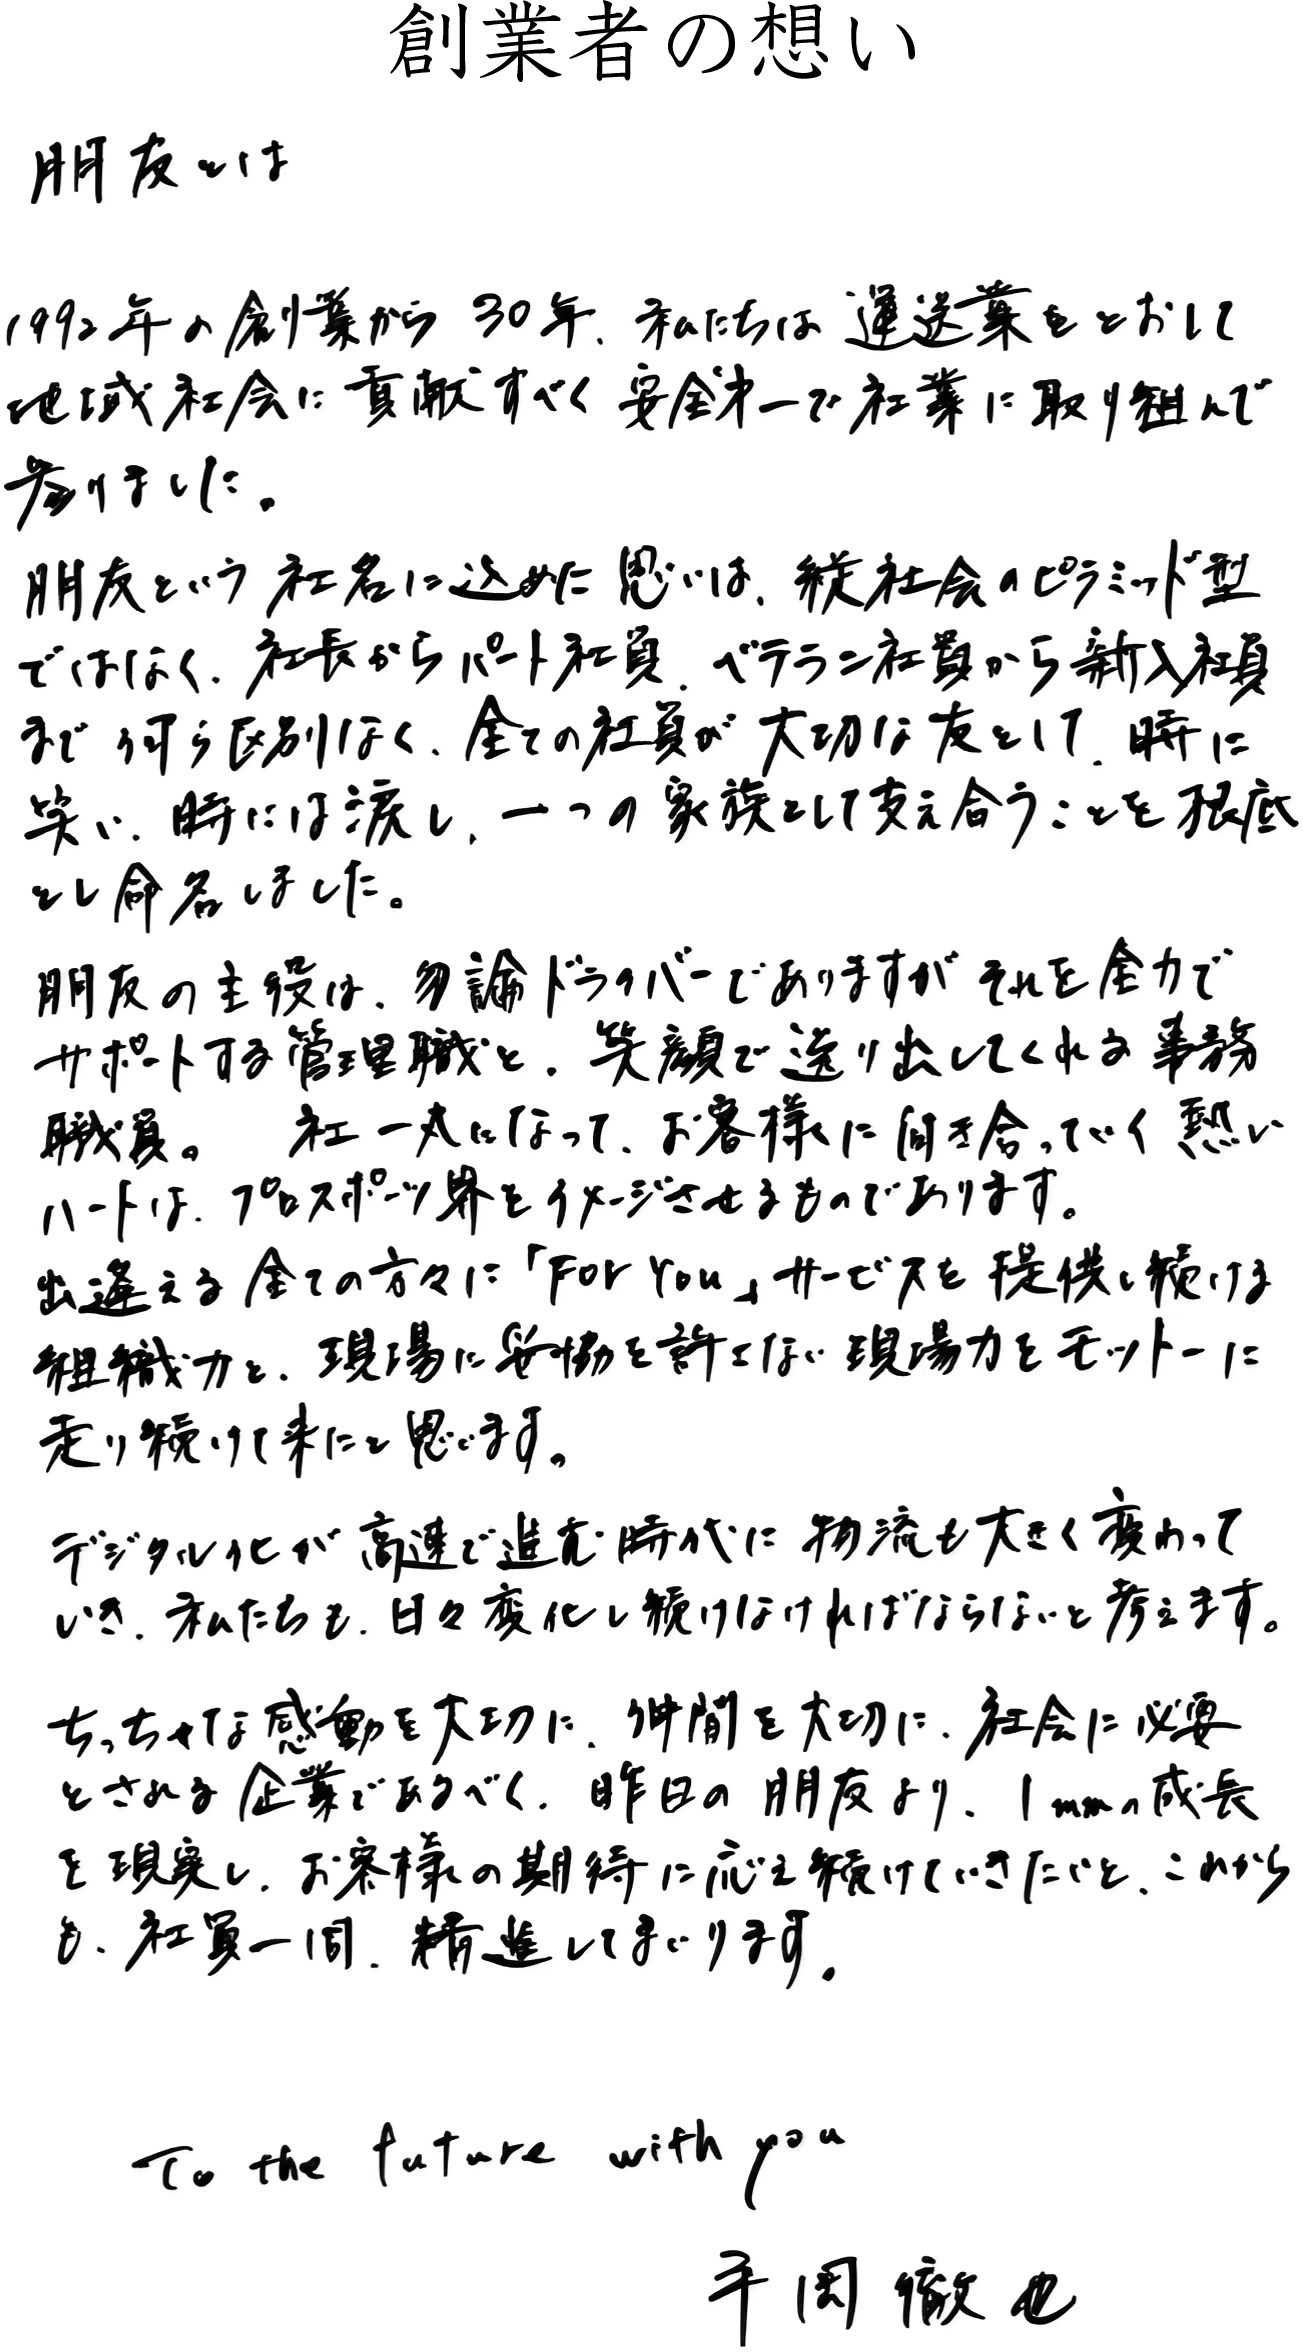 創業者の想い
朋友とは
1992年の創業から30年、私たちは運送業をとおして
地域社会に貢献すべく安全第一で社業に取り組んで
参りました。
朋友という社名に込めた思いは、縦社会のピラミッド型
ではなく、社長からパート社員、ベテラン社員から新入社員
まで何ら区別なく、全ての社員が大切な友として、時に
笑い、時には涙し、一つの家族として支え合うことを根底
とし命名しました。
朋友の主役は、勿論ドライバーでありますがそれを全力で
サポートする管理職と、笑顔で送り出してくれる事務
職員。 社一丸になって、お客様に向き合っていく熱い
ハートは、プロスポーツ界をイメージさせるものであります。
出逢える全ての方々に「For You」サービスを提供し続ける
組織力と、現場に妥協を許さない現場力をモットーに
走り続けて来たと思います。
デジタル化が高速で進む時代に物流も大きく変わって
いき、私たちも、日々変化し続けなければならないと考えます。
ちっちゃな感動を大切に、仲間を大切に、社会に必要
とされる企業であるべく、昨日の朋友より、1mmの成長
を現実し、お客様の期待に応え続けていきたいと、これから
も、社員一同、精進してまいります。
To the future with you
平岡徹也